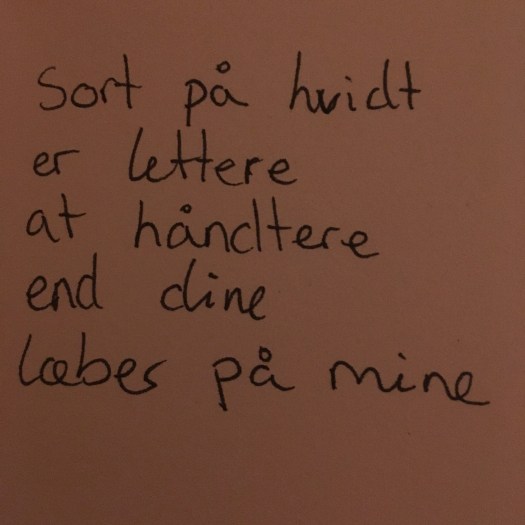 Sort på hvidt
er lettere
at håndtere
end dine
læbes på mine